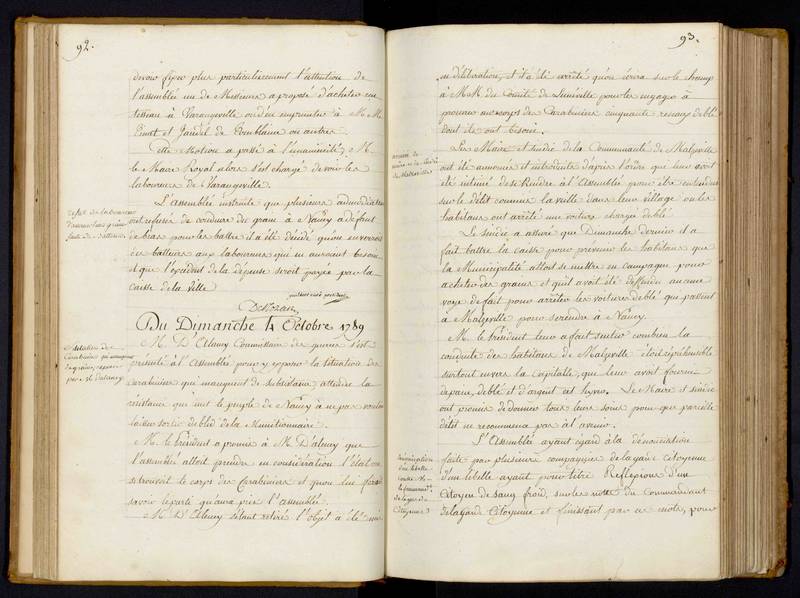 92.
devoir fixer plus particulierement l'attention de
l'assemblée un de Messieurs a proposé d'acheter un
à Varangeville ou d'en emprunter à M.M.
et Jandel de ou autres.
Cette Motion a passé à l'unanimité, M.
le Maire Royal alors s'est chargé de voir les
laboureurs de Varangeville.
refus de laboureurs
L'Assemblée instruite que plusieurs
ont refusés de conduire du grain à Nancy à défaut
de bras pour les battre il a été décidé qu'on enverroit
des batteurs aux laboureurs qui en auroient besoin
et que l'excédent de la dépense seroit payée par la
caisse de la ville
président
Du Dimanche 4 Octobre 1789
Situation des
Carabiniers qui manquent
de grains, exposée
par M. Dalency
M. D'Alency Commissaire des guerres s'est
présenté à l'Assemblée pour y exposer la situation des
Carabiniers qui manquent de subsistance, attendu la
résistance que met le peuple de Nancy à ne pas vouloir
laisser sortir de bled de la Munitionnaire.
M. le Président a promis à M. D'alency que
l'assemblée alloit prendre en considération l'état où
se trouvoit le corps des Carabiniers et qu'on lui feroit
savoir le parti qu'aura pris l'assemblée.
M. D'Alency s'étant retiré l'objet a été mis
93.
en délibération, et il a été arrêté qu'on écrira sur le champ
à M.M. du Comité de Lunéville pour les engager à
procurer au corps des Carabiniers cinquante resaux de bled
dont ils ont besoin.
Les Maire et sindic de la Communauté de Malzeville
ont été annoncés et introduits d'après l'ordre qui leur avoit
été intimé de se Rendre à l'Assemblée pour être entendus
sur le délit commis la veille dans leur village où les
habitans ont arrêté une voiture chargée de bled.
Le sindic a assuré que Dimanche dernier il a
fait battre la caisse pour prévenir les habitans que
la Municipalité alloit se mettre en campagne pour
acheter des grains et qu'il avoit été deffendu aucune
voye de fait pour arrêter les voitures de bled qui passent
à Malzeville pour se rendre à Nancy.
M. le Président leur a fait sentir combien la
conduite des habitans de Malzeville étoit repréhensible
surtout envers la capitale, qui leur avoit fourni
de pain, de bled et d'argent cet hyver. Le Maire et sindic
ont promis de donner tous leurs soins pour que pareille
délit ne recommence pas à l'avenir.
Dénonciation
d'un libelle
contre M.
le Commandant
de la garde
Citoyenne
L'Assemblée ayant égard à la dénonciation
faite par plusieurs compagnies de la garde citoyenne
d'un libelle ayant pour titre Réflexions d'un
Citoyen de sang froid, sur les notes du Commandant
de la garde Citoyenne et finissant par ces mots, pour